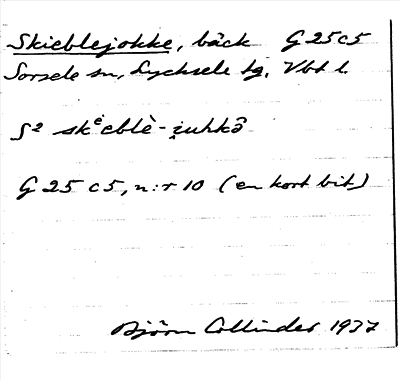 Skieblejokke, bäck G 25 c5
Sorsele sn, Lycksele tg. Vbt l.
S² skᵉ̀eblè-i̯uhkō̂
G 25 c5, n:r 10 (en kort bit)
Björn Collinder 1937